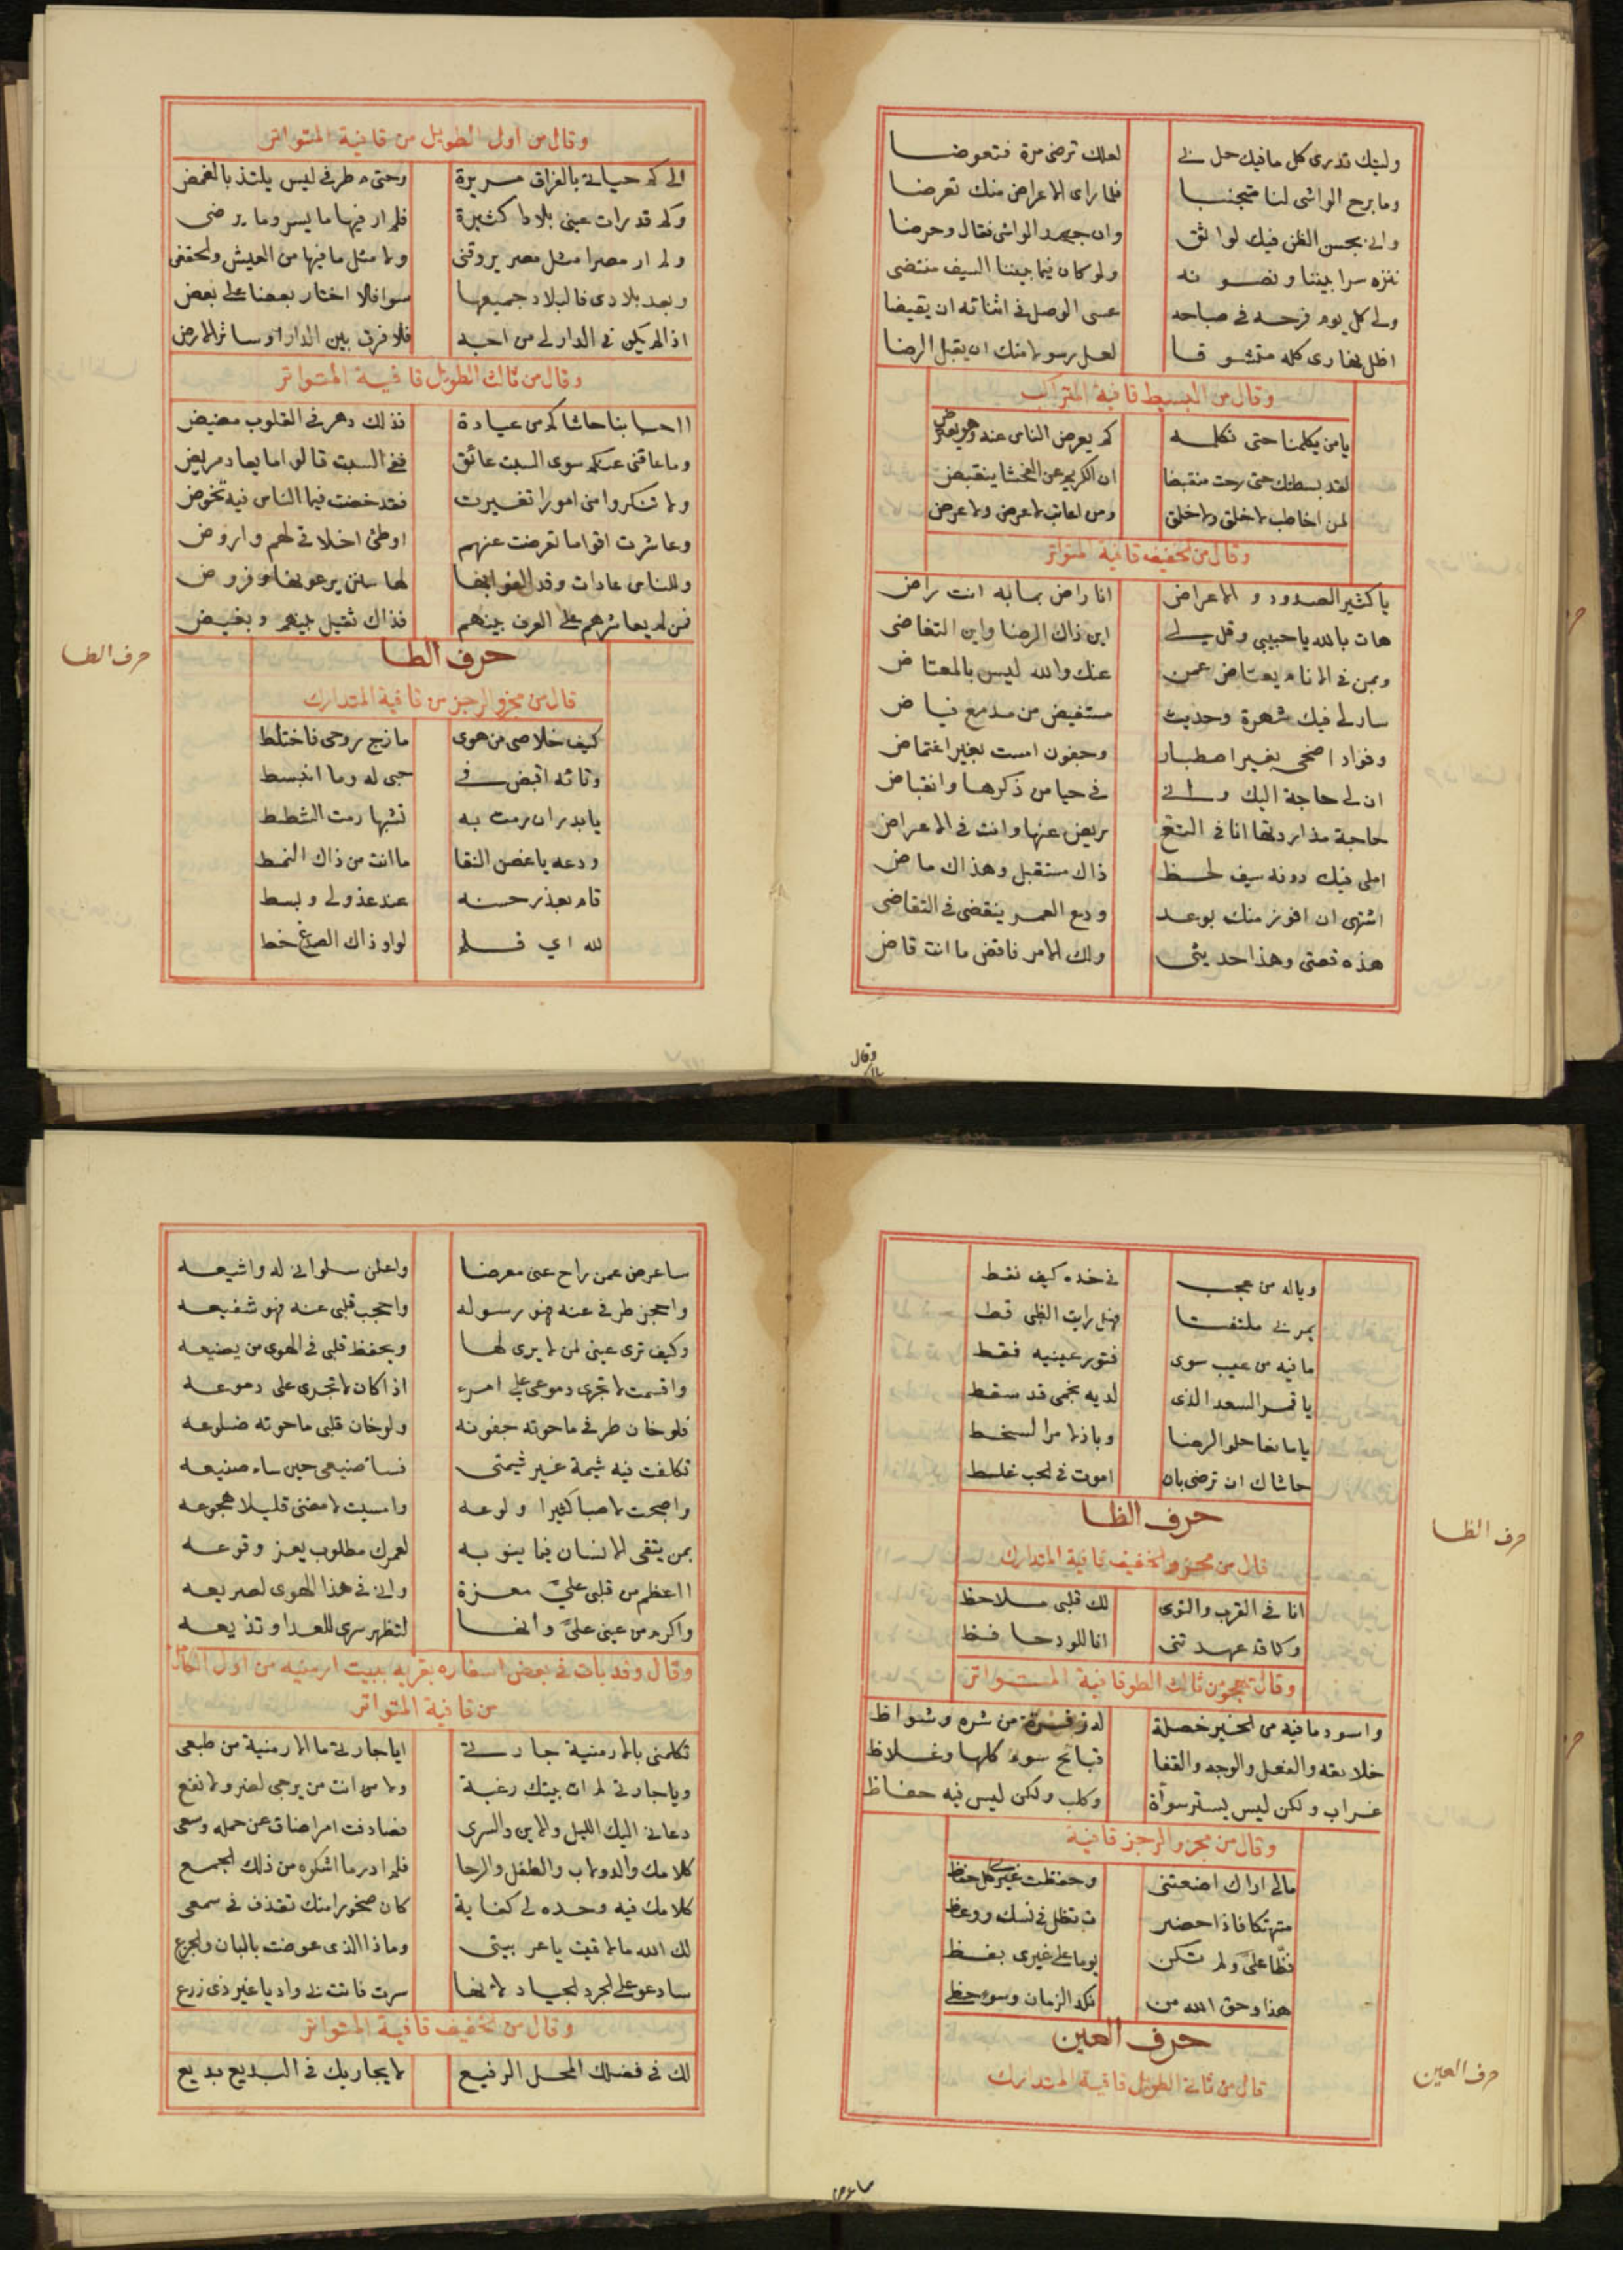 وليتك تدرى كل ما فيك حل لى لعلك ترضى مرة فتعوضا
وما برح الواشى لنا متجنبا فلما راى الاعراض منك تعرضا
وانى بحسن الظن فيك لواثق وان جهد الواشى فقال وحرضا
ننزه سرا بيننا ونصونه ولو كان فيما بيننا السيف منتضى
ولى كل يوم فرحة فى صباحه عسى الوصل فى اثنائه ان يقيضا
اظل نهارى كله متشوقا لعل رسولا منك ان يقبل الرضا
وقال من البسيط قافية المتراكب
يا من يكلمنا حتى نكلمه كم يعرض الناس عنه وهو يعترض
لقد بسطتك حتى رحت منقبضا ان الكريم عن الفحشا ينقبض
لمن اخاطب لا خلق ولا خلق ومن اعاتب لا عرض ولا عرض
وقال من الخفيف قافية المتواتر
يا كثير الصدود والاعراض انا راض بما به انت راض
هات بالله يا حبيبى وقل لى اين ذاك الرضا واين التغاضى
وبمن فى الانام يعتاض عمن عنك والله ليس بالمعتاض
سار لى فيك شهرة وحديث مستفيض من مدمع فياض
وفواد اضحى بغير اصطبار وجفون امست بغير اغتماض
ان لى حاجة اليك وانى فى حيا من ذكرها وانقباض
حاجة مذ اردتها انا فى التعـ ريض عنها وانت فى الاعراض
املى فيك دونه سيف لحظ ذاك مستقبل وهذاك ماض
اشتهى ان افوز منك بوعد ودع العمر ينقضى فى التقاضى
هذه قصتى وهذا حديثى ولك الامر فاقض ما انت قاض
وقال
وقال من اول الطويل من قافية المتواتر
الى كم حياتى بالفراق مريرة وحتى م طرفى ليس يلتذ بالغمض
وكم قد رات عينى بلادا كثيرة فلم ار فيها ما يسر وما يرضى
ولم ار مصرا مثل مصر يروقنى ولا مثل ما فيها من العيش والخفض
وبعد بلادى فالبلاد جميعها سوا فلا اختار بعضا على بعض
اذا لم يكن فى الدار لى من احبه فلا فرق بين الدار او سائر الارض
وقال من ثالث الطويل قافية المتواتر
ااحبابنا حاشاكم من عيادة فذلك دهر فى القلوب مضيض
وما عاقنى عنكم سوى السبت عائق ففى السبت قالوا ما يعاد مريض
ولا تنكروا منى امورا تغيرت فقد خضت فيما الناس فيه تخوض
وعاشرت اقواما تعرضت عنهم اوطئ اخلاقى لهم واروض
وللناس عادات وقد الفوا بها لها سنن يرعونها وفروض
فمن لم يعاشرهم على العرف بينهم فذاك ثقيل بينهم وبغيض
حرف الطا
حرف الطا
قال من مجزو الرجز من قافية المتدارك
كيف خلاصى من هوى مازج روحى فاختلط
وتائه اقبض فى حبى له وما انبسط
يا بدر ان رمت به تشبها رمت الشطط
ودعه يا غصن النقا ما انت من ذاك النمط
قام بعذر حسنه عند عذولى وبسط
لله اى قلم لواو ذاك الصدغ خط
وياله من عجب فى خده كيف نقط
يمر بى ملتفتا فهل رايت الظبى قط
ما فيه من عيب سوى فتور عينيه فقط
يا قمر السعد الذى لديه نجمى قد سقط
يا مانعا حلو الرضا وباذلا مر السخط
حاشاك ان ترضى بان اموت فى الحب غلط
حرف الظا
حرف الظا
قال من مجزو الخفيف قافية المتدارك
انا فى القرب والنوى لك قلبى ملاحظ
وكما قد عهدتنى انا للود حافظ
وقال يهجو من ثالث الطو قافية المتواتر
واسود ما فيه من الخير خصلة له زفرة من شره وشواظ
خلائقه والفعل والوجه والقفا قبائح سوء كلها وغلاظ
غراب ولكن ليس يستر سوأة وكلب ولكن ليس فيه حفاظ
وقال من مجزو الرجز قافية
مالى اراك اضعتنى وحفظت غيرى كل حفظ
متهتكا فاذا حضر ت تظل فى نسك ووعظ
فظا على ولم تكن يوما على غيرى بفظ
هذا وحق الله من نكد الزمان وسوء حظى
حرف العين
حرف العين
قال من ثانى الطويل قافية المتدارك
ساعرض
ساعرض عمن راح عنى معرضا واعلن سلوانى له واشيعه
واحجز طرفى عنه فهو رسوله واحجب قلبى عنه فهو شفيعه
وكيف ترى عينى لمن لا يرى لها ويحفظ قلبى فى الهوى من يضيعه
واقسمت لا تجرى دموعى على امرء اذا كان لا تجرى على دموعه
فلو خان طرفى ما حوته جفونه ولو خان قلبى ما حوته ضلوعه
تكلفت فيه شيمة غير شيمتى فسا صنيعى حين ساء صنيعه
واصبحت لا صبا كثيرا ولوعه وامسيت لا مضنى قليلا هجوعه
بمن يثقى الانسان فيما ينوبه لعمرك مطلوب يعز وقوعه
ااعظم من قلبى على معزة وانى فى هذا الهوى لصريعه
واكرم من عينى على وانها لتظهر سرى للعدا وتذيعه
وقال وقد بات فى بعض اسفاره بقرية ببيت ارمنيه من اول الطويل
من قافية المتواتر
تكلمنى بالارمنية جارتى ايا جارتى ما الارمنية من طبعى
ويا جارتى لم ات بيتك رغبة ولا من انت من يرجى لضر ولا نفع
دعانى اليك الليل والاين والسرى فصادفت امرا ضاق عن حمله وسعى
كلامك والدولاب والطفل والرحا فلم ادر ما اشكوه من ذلك الجمع
كلامك فيه وحده لى كفاية كان صخورا منك تقذف فى سمعى
لك الله ما لاقيت يا عربيتى وماذا الذى عوضت بالبان والجزع
سادعو على الجرد الجياد لانها سرت فاتت بى واديا غير ذى زرع
وقال من الخفيف قافية المتواتر
لك فى فضلك المحل الرفيع لا يجاريك فى البديع بديع